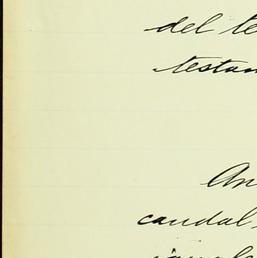 del te
testam
An
caudal